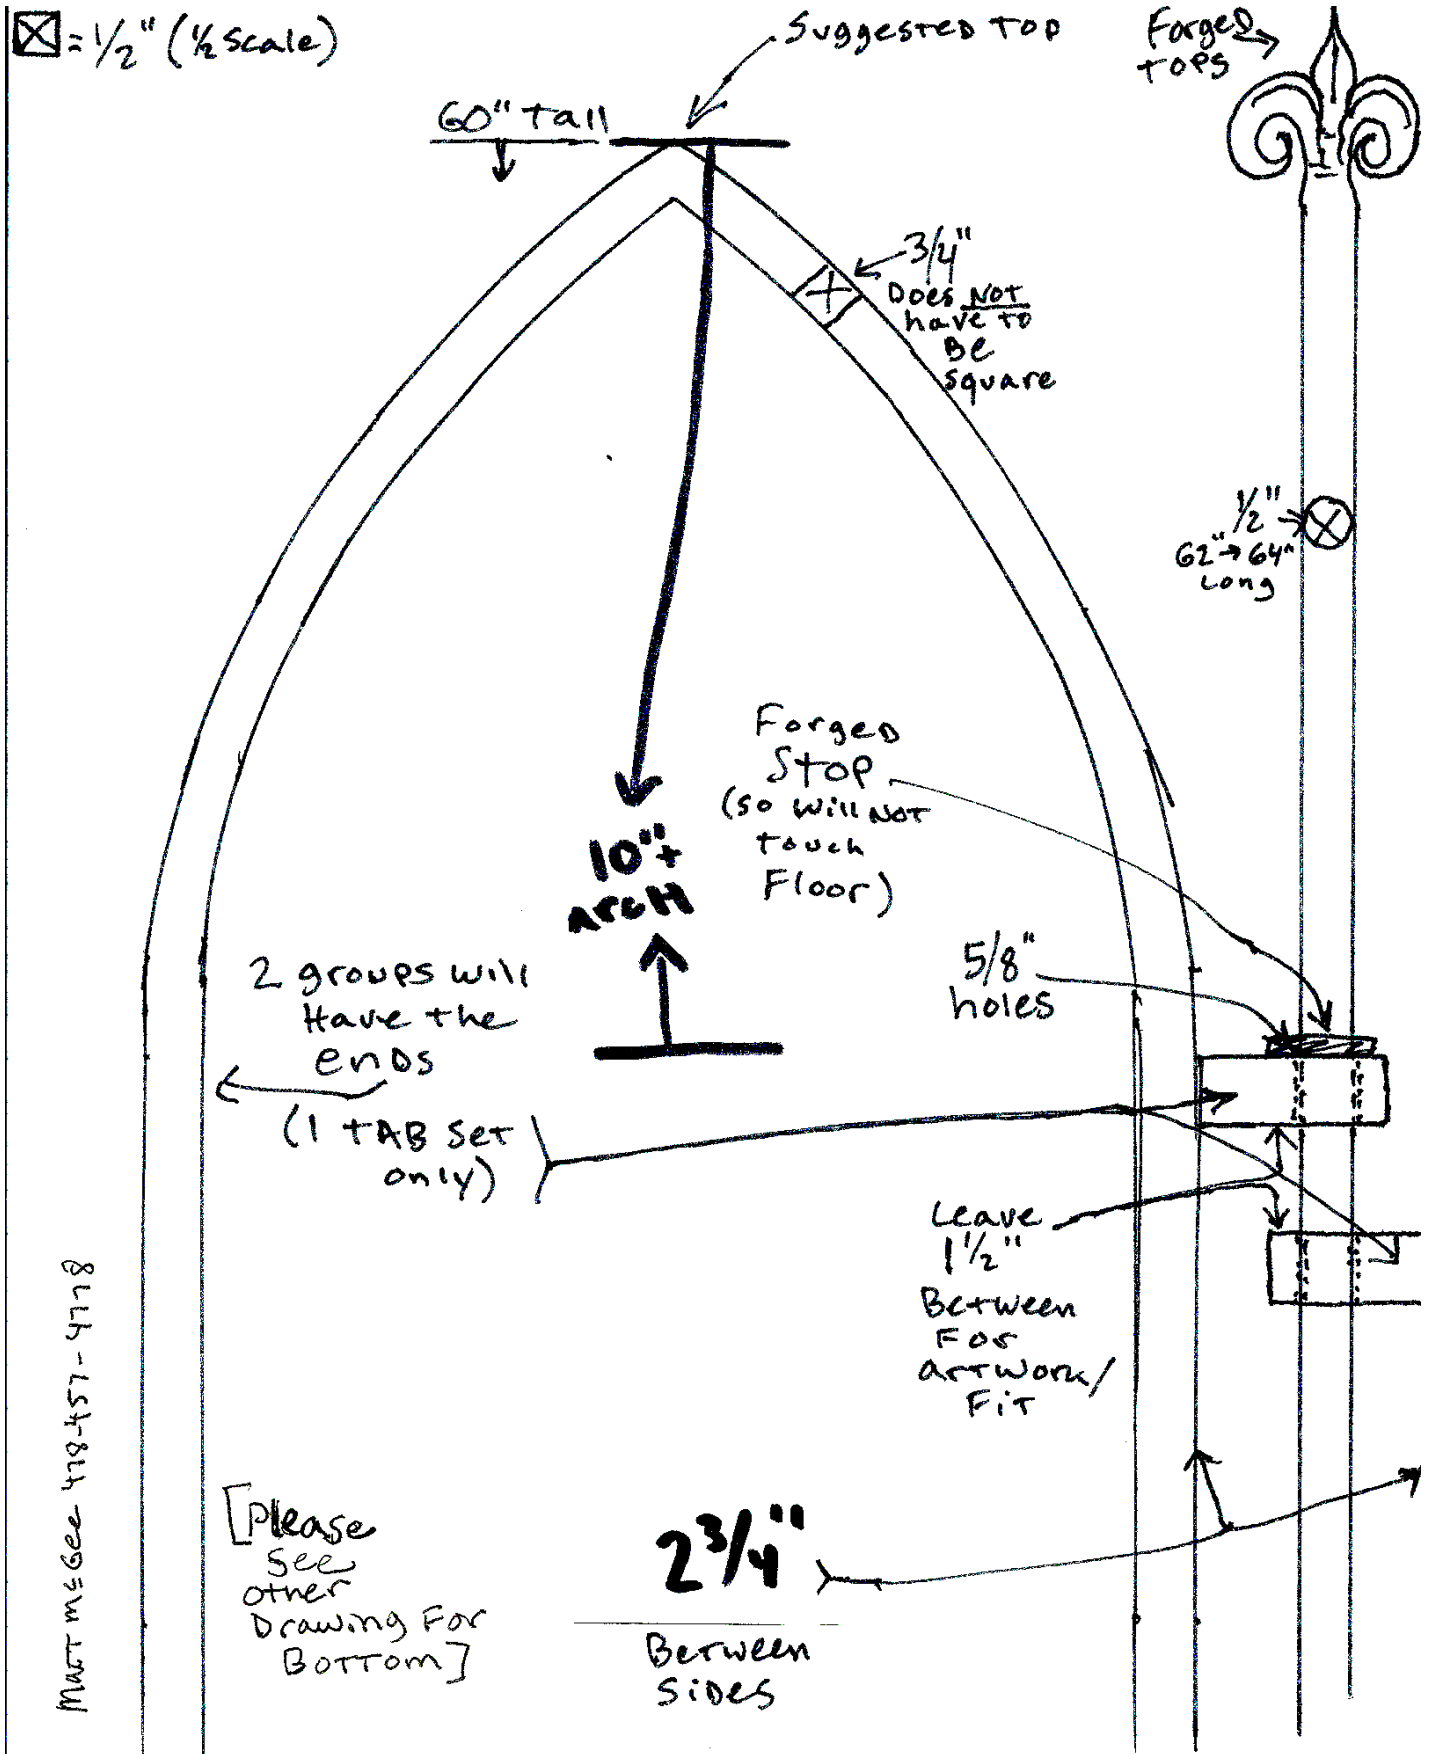 = 1/2" (1/2 scale)
Suggested Top
Forged
Tops
60" Tall
3/4"
Does NOT
have to
Be
square
1/2"
62" → 64"
Long
Forged
Stop
(so will NOT
touch
Floor)
10"+
Arch
5/8"
holes
2 groups will
Have the
ends
(1 TAB set
only)
Leave
1 1/2"
Between
For
artwork/
Fit
[Please
See
other
Drawing For
Bottom]
2 3/4"
Between
Sides
Matt McGee 478-457-4778